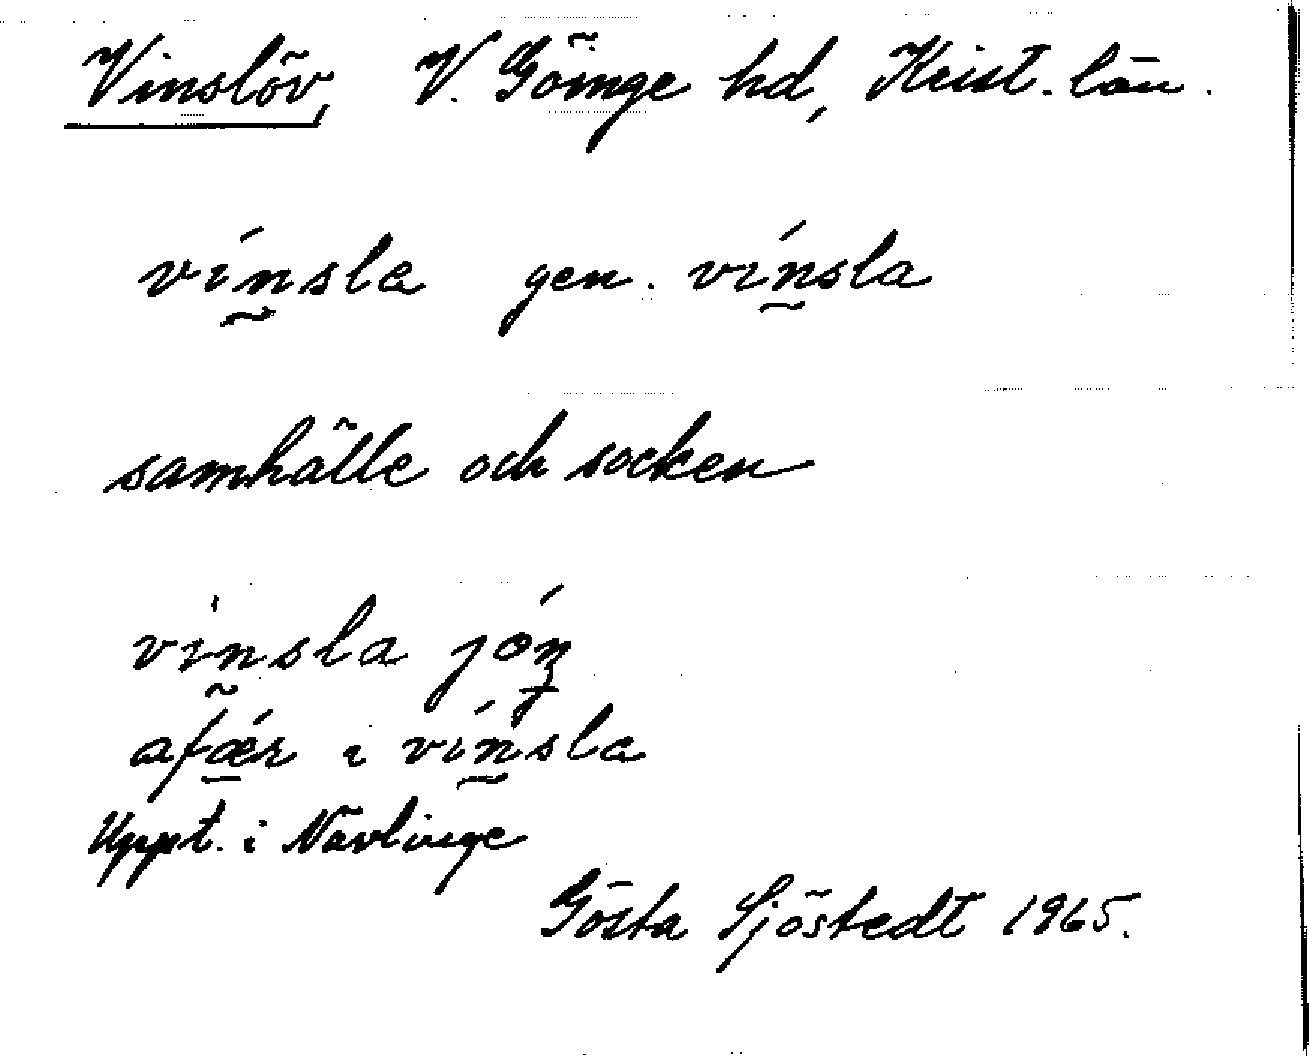 Vinslöv, V. Göinge hd, Krist. län.
vı́n̰sla gen. vı́n̰sla
samhälle och socken
vın̰sla jón
afǽ̱r ı vı́n̰sla
Uppt. i Nävlinge
Gösta Sjöstedt 1965.